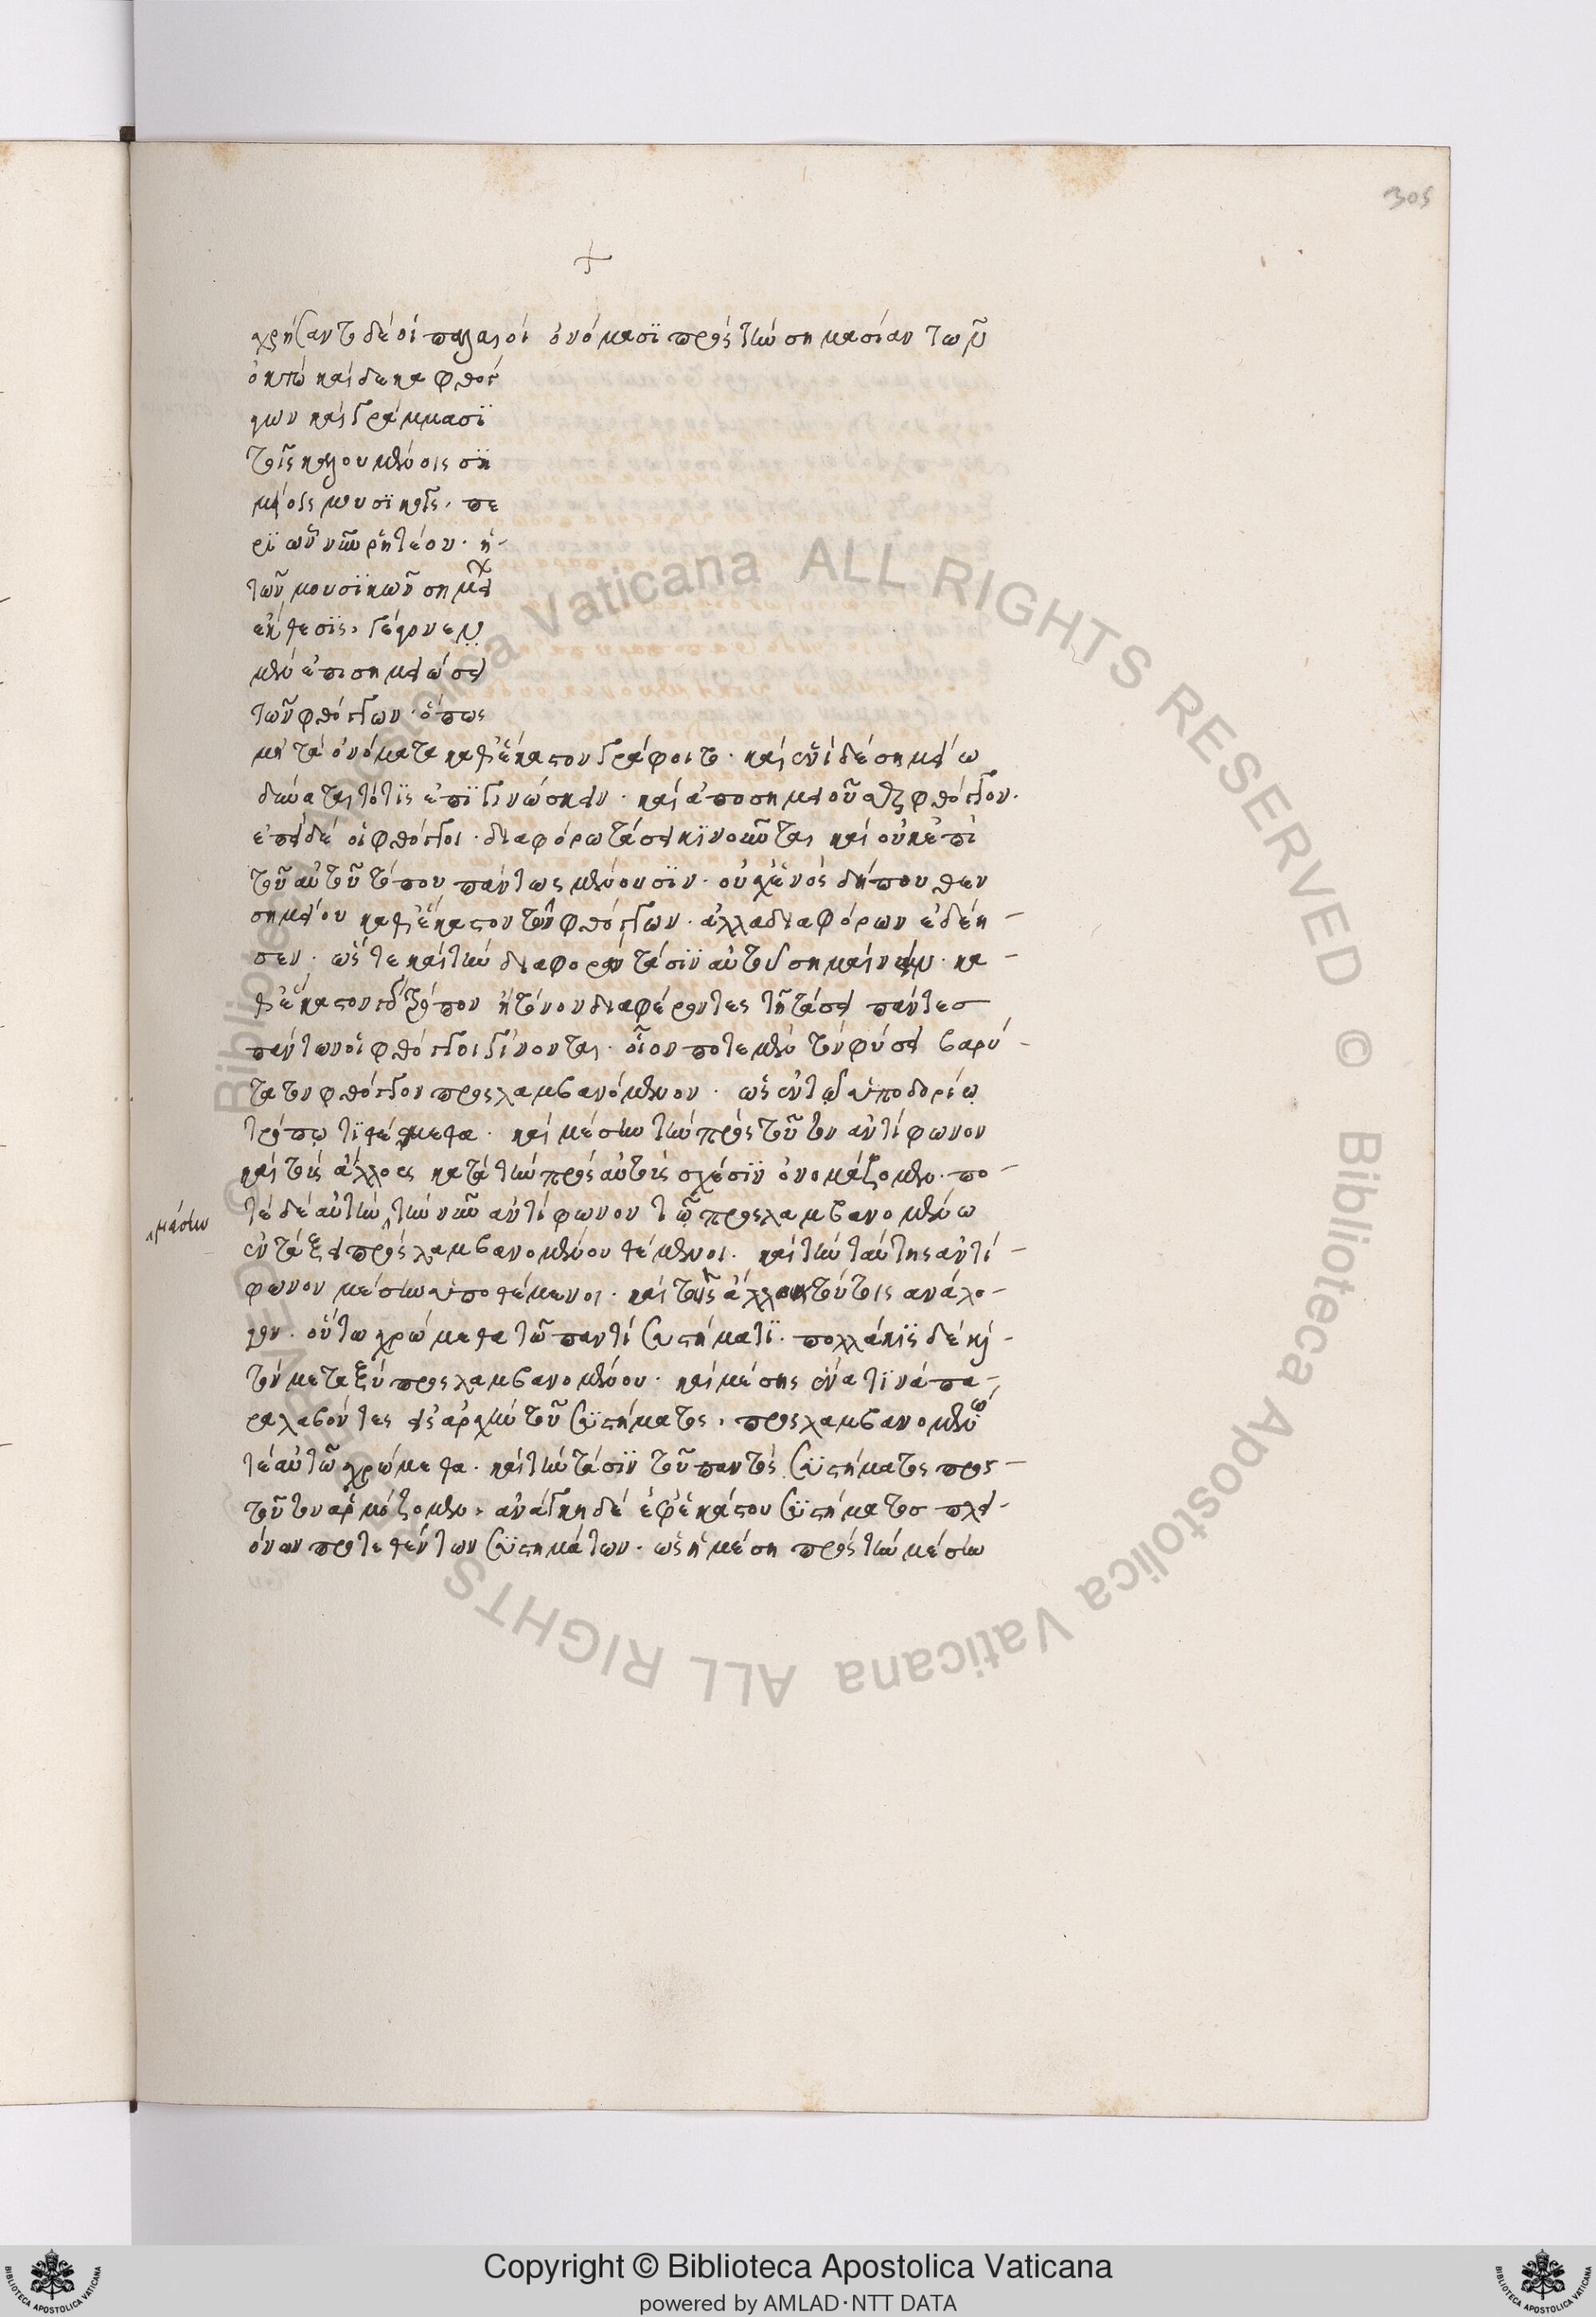 305
χρήσαντο δὲ οἱ παλαιοὶ ὀνόμασϊ πρὸς τὴν σημασίαν τῶν
ὀκτὼ καὶ δεκα φθόγ
γων καὶ γράμμασϊ
τοῖς καλουμένοις ση
μείοις μουσϊκοῖς. πε
ρϊ ὧν νῦν ῥητέον. ἡ
τῶν μουσϊκῶν σημεί
ἔκθεσϊς. γέγονεν
μὲν ἐπισημειώσει
τῶν φθόγγων. ὅπως
μὴ τὰ ὀνόματα καθ' ἕκαστον γράφοιτο. καὶ ἐνὶ δὲ σημείω
δύναται τὸ τϊς ἐπϊγινώσκειν. καὶ ἀποσημειοῦσθαι φθόγγον.
ἐπεὶ δὲ οἱ φθόγγοι. διαφόρω τάσει κϊνοῦνται καὶ οὐκ ἐπὶ
τοῦ αὐτοῦ τόπου πάντως μένουσϊν. οὐχ ἑνὸς δήπουθεν
σημείου καθ' ἕκαστον τῶν φθόγγων. ἀλλα διαφόρων ἐδέη
σεν. ὥστε καὶ τὴν διαφορὰν τάσϊν αὐτοῦ σημαίνειν. κα
θ' ἕκαστον τρόπον ἢ τόνον διαφέροντες τῇ τάσει παντεσ
πάντων οἱ φθόγγοι γίνονται. οἷον ποτε μὲν τὸν φύσει βαρύ
τατον φθόγγον προσλαμβανόμενον. ὡς ἐν τῷ ὑποδορίῳ
τρόπῳ τϊθέμεθα. καὶ μέσην τὴν πρὸς τοῦτον ἀντίφωνον
καὶ τοὺς ἄλλους κατὰ τὴν πρὸς αὐτοὺς σχέσϊν ὀνομάζομεν. πο
τὲ δὲ αὐτὴν τὴν νῦν ἀντίφωνον τῷ προσλαμβανομένω
μέσην
ἐν τάξει προσλαμβανομένου θέμενοι. καὶ τὴν ταύτης ἀντί
φωνον μέσην ὑποθέμενοι. καὶ τοῖς ἄλλοις τούτοις ανάλο
γον. οὕτω χρώμεθα τῷ παντὶ συστήματϊ. πολλάκϊς δὲ καὶ
τὸν μεταξὺ προσλαμβανομένου. καὶ μέσης ἕνα τϊνὰ πα
ραλαβόντες εἰς ἀρχὴν τοῦ συϊστήματος. προσλαμβανομένω
τὲ αὐτῷ χρώμεθα. καὶ τὴν τάσϊν τοῦ παντὸς συϊστήματος προς
τοῦτον ἁρμόζομεν. ἀνάγκη δὲ ἐφ' ἑκάστου συϊστήματοσ πλει
όνων προτεθέντων συϊστημάτων. ὡς ἡ μέση πρὸς τὴν μέσην
© Biblioteca Apostolica Vaticana ALL RIGHTS RESERVED © Biblioteca Apostolica Vaticana ALL RIGHTS RESERVED
Copyright © Biblioteca Apostolica Vaticana
powered by AMLAD·NTT DATA
BIBLIOTECA APOSTOLICA VATICANA
BIBLIOTECA APOSTOLICA VATICANA